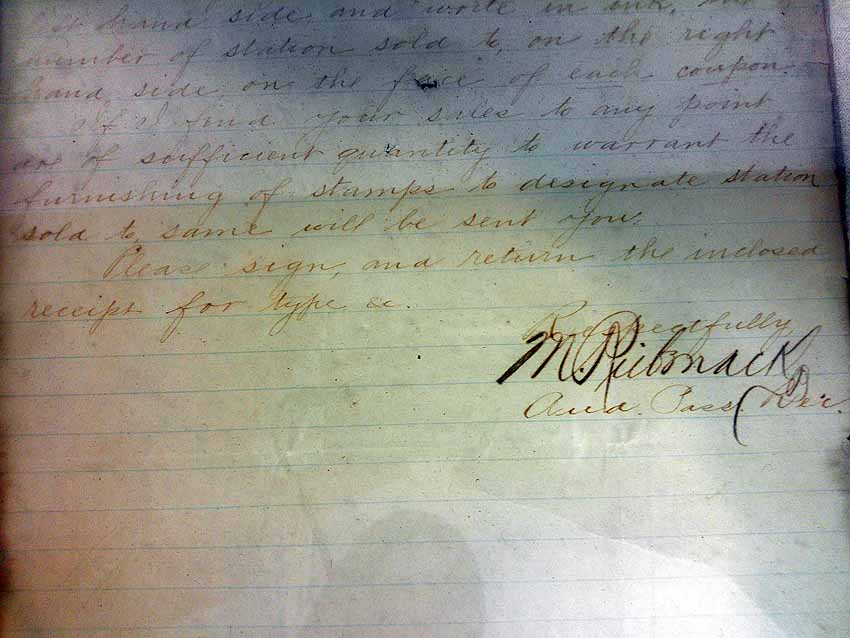 hand side, and write in ink, the
number of station sold to, on the right
hand side, on the face of each coupon.
If I find your sales to any point
are of sufficient quantity to warrant the
furnishing of stamps to designate station
sold to, same will be sent you.
Please sign, and return the inclosed
receipt for type &c.
Respectfully
M.
Aud. Pass.